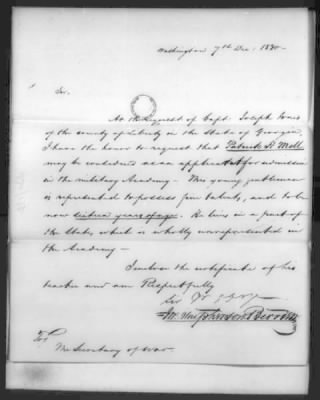 Washington 7th Dec. 1830
Sir.
At the request of Capt. Joseph
of the county of Liberty in the State of Georgia,
I have the honor to request that Patrick H. Mell
may be considered as an applicant for admission
in the Military Academy - This young gentleman
is represented to possess fine talents, and to be
now sixteen years of age. He lives in a part of
the State, which is wholly unrepresented in
the Academy -
I enclose the certificate of his
teacher and am Respectfully
Jno. Macpherson Berrien
To
The Secretary of War.